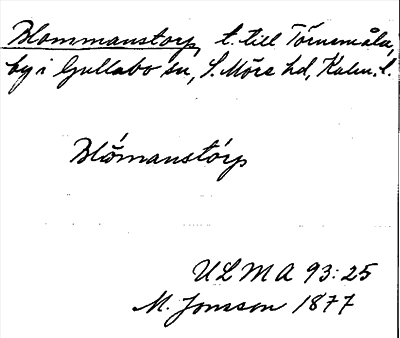 Blommanstorp, t. till Törnemåla,
by i Gullabo sn, S. Möre hd, Kalm. l.
Blómanstórp
ULMA 93:25
M. Jonsson 1877